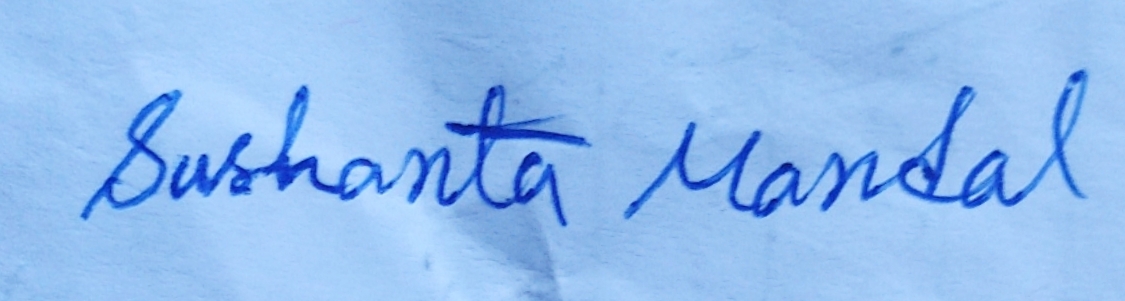 Sushanta Mandal